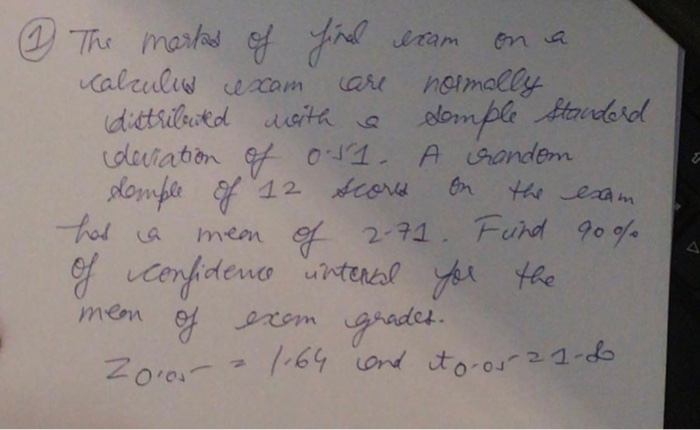 ① The marks of final exam on a
calculus exam are normally
distributed with a sample standard
deviation of 0.51. A random
sample of 12 scores on the exam
has a mean of 2.71. Find 90%
of confidence interval for the
mean of exam grades.
Z0.05 = 1.64 and t0.05 = 1.80